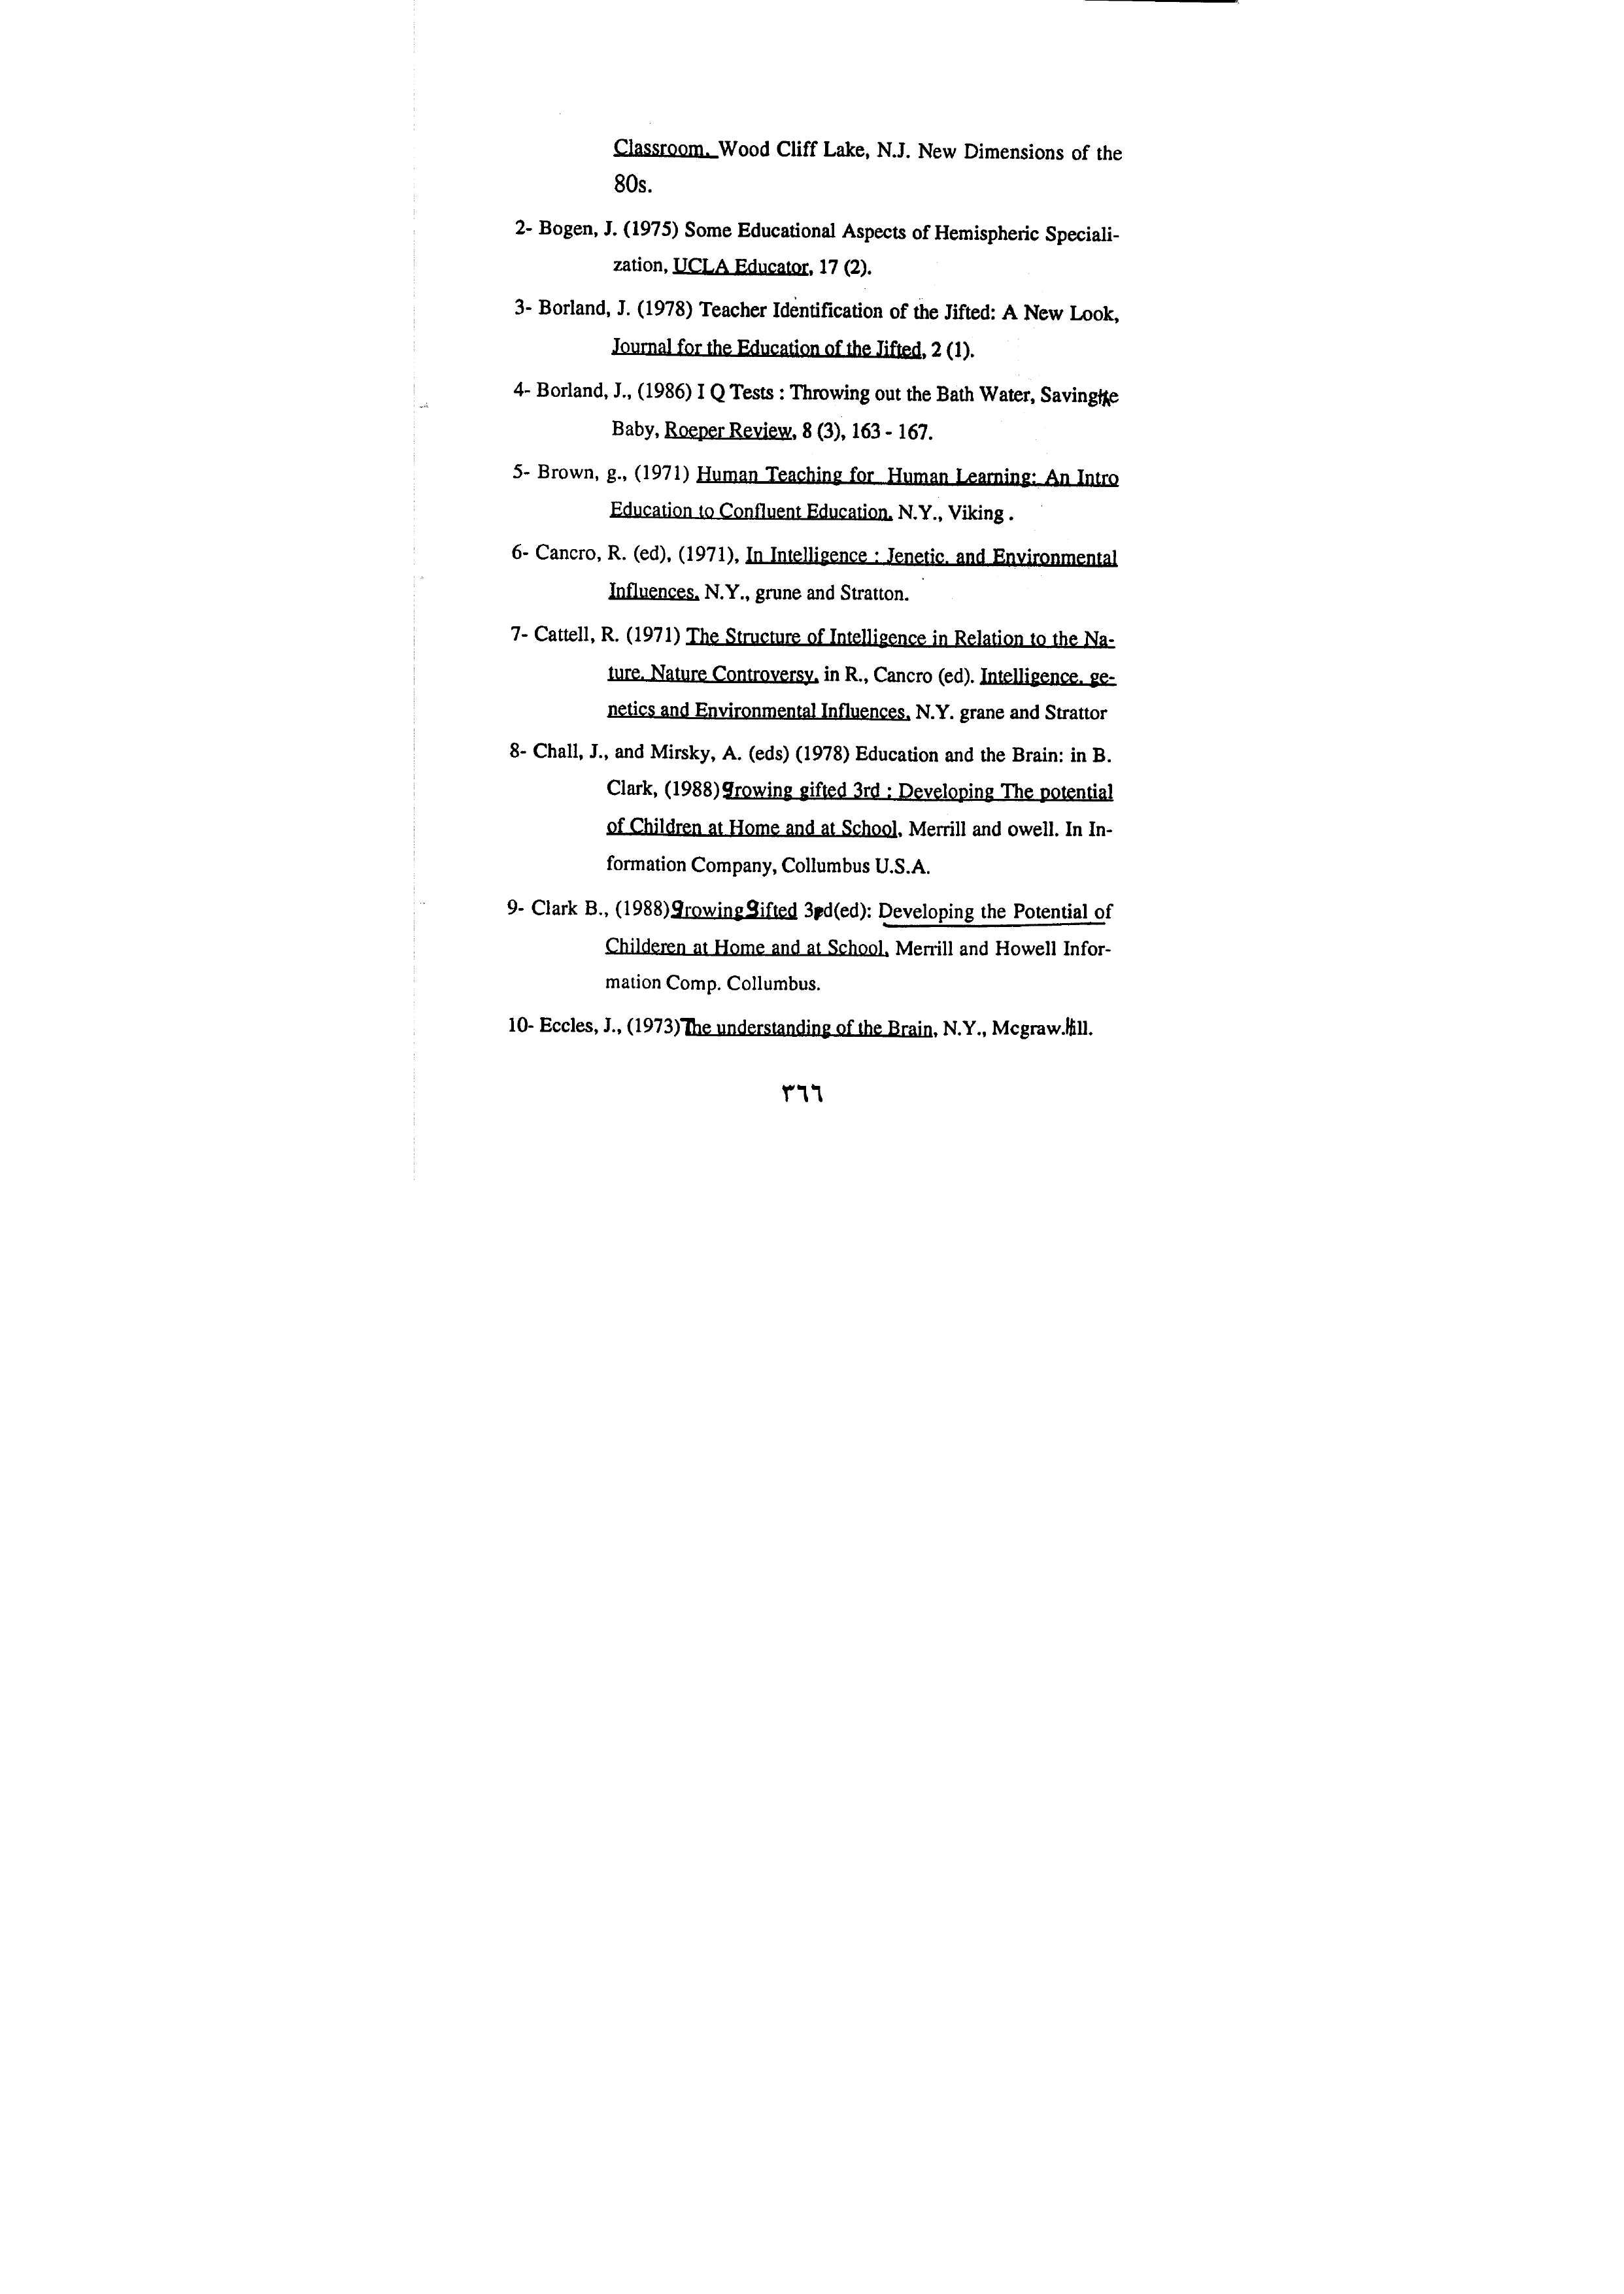 Classroom. Wood Cliff Lake, N.J. New Dimensions of the
80s.
2- Bogen, J. (1975) Some Educational Aspects of Hemispheric Speciali-
zation, UCLA Educator, 17 (2).
3- Borland, J. (1978) Teacher Identification of the Jifted: A New Look,
Journal for the Education of the Jifted, 2 (1).
4- Borland, J., (1986) I Q Tests : Throwing out the Bath Water, Saving the
Baby, Roeper Review, 8 (3), 163 - 167.
5- Brown, g., (1971) Human Teaching for Human Learning: An Intro
Education to Confluent Education, N.Y., Viking .
6- Cancro, R. (ed), (1971), In Intelligence : Jenetic, and Environmental
Influences, N.Y., grune and Stratton.
7- Cattell, R. (1971) The Structure of Intelligence in Relation to the Na-
ture, Nature Controversy, in R., Cancro (ed). Intelligence, ge-
netics and Environmental Influences, N.Y. grane and Strattor
8- Chall, J., and Mirsky, A. (eds) (1978) Education and the Brain: in B.
Clark, (1988) growing gifted 3rd : Developing The potential
of Children at Home and at School, Merrill and owell. In In-
formation Company, Collumbus U.S.A.
9- Clark B., (1988) growing gifted 3rd(ed): Developing the Potential of
Childeren at Home and at School, Merrill and Howell Infor-
mation Comp. Collumbus.
10- Eccles, J., (1973) The understanding of the Brain, N.Y., Mcgraw.Hill.
٣٦٦